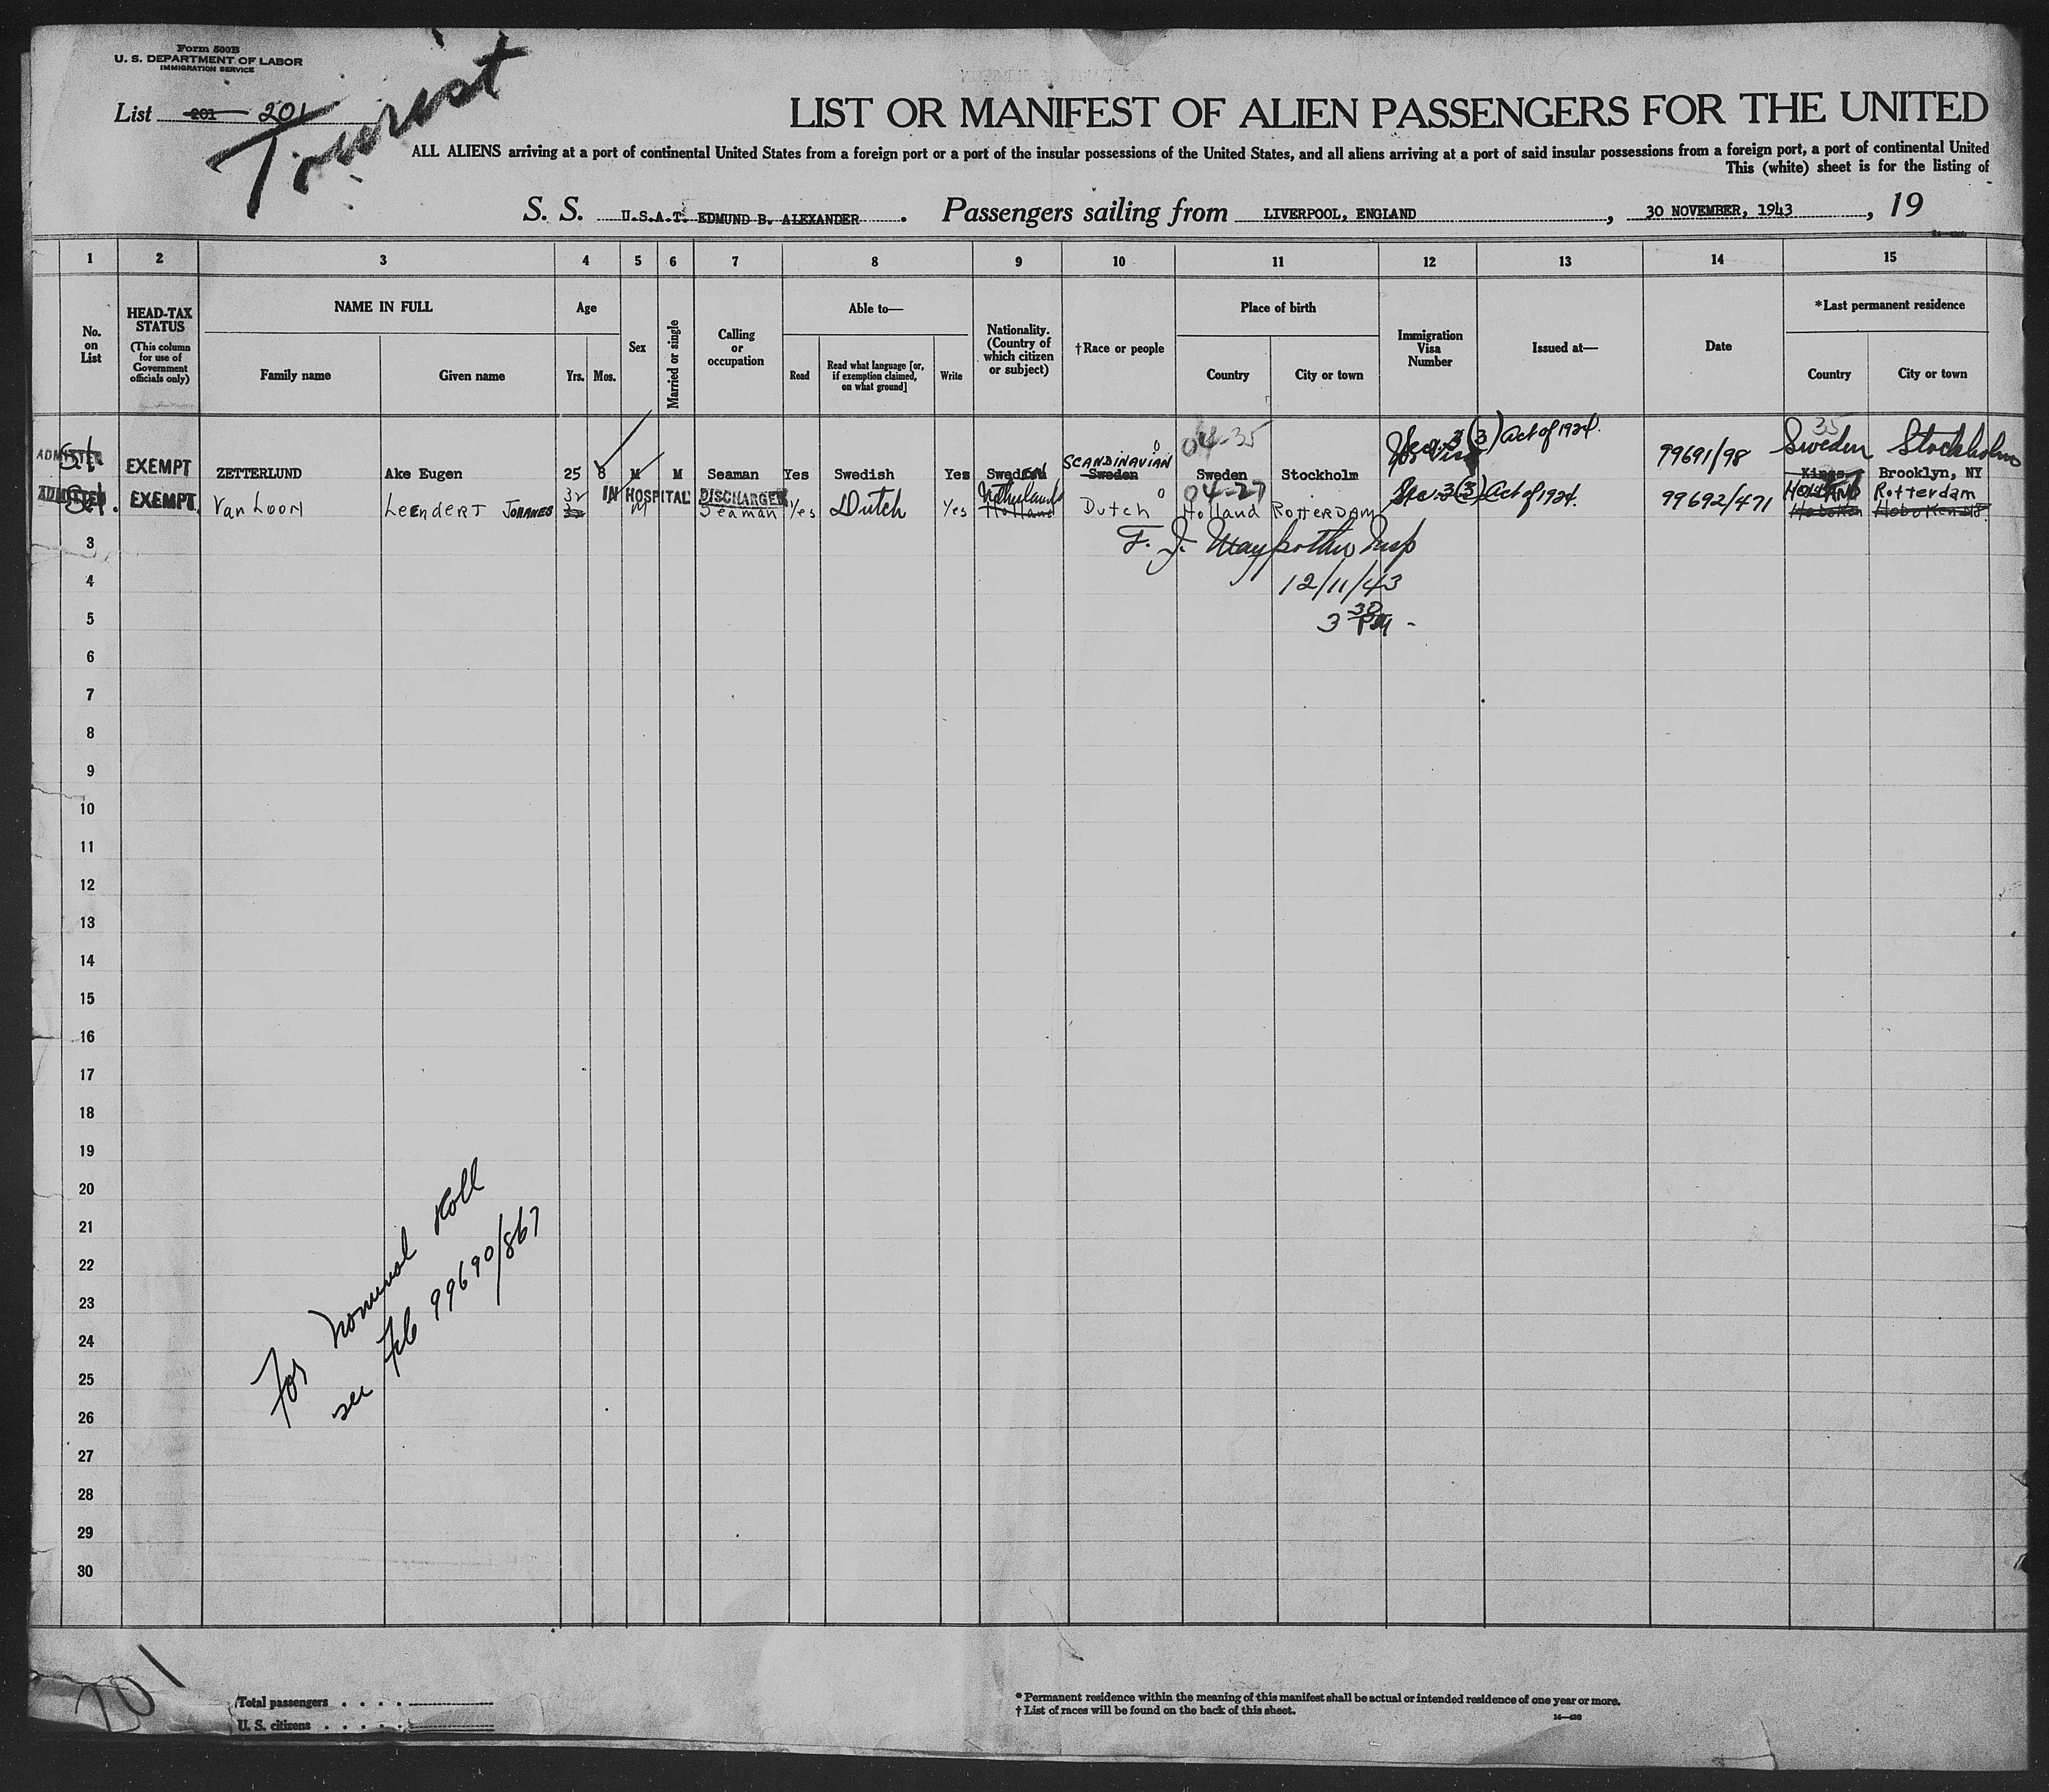 Form 500B
U. S. DEPARTMENT OF LABOR
IMMIGRATION SERVICE
List 201 201
Tourist
LIST OR MANIFEST OF ALIEN PASSENGERS FOR THE UNITED
ALL ALIENS arriving at a port of continental United States from a foreign port or a port of the insular possessions of the United States, and all aliens arriving at a port of said insular possessions from a foreign port, a port of continental United
This (white) sheet is for the listing of
S. S. U.S.A.T. EDMUND B. ALEXANDER . Passengers sailing from LIVERPOOL, ENGLAND , 30 NOVEMBER, 1943 , 19
1 2 3 4 5 6 7 8 9 10 11 12 13 14 15
No. on List
HEAD-TAX STATUS
(This column for use of Government officials only)
NAME IN FULL
Family name Given name
Age
Yrs. Mos.
Sex
Married or single
Calling or occupation
Able to—
Read
Read what language [or, if exemption claimed, on what ground]
Write
Nationality. (Country of which citizen or subject)
†Race or people
Place of birth
Country City or town
Immigration Visa Number
Issued at—
Date
*Last permanent residence
Country City or town
04-35 3(3) Act of 1924. 35
ADMITTED EXEMPT ZETTERLUND Ake Eugen 25 8 M M Seaman Yes Swedish Yes SCANDINAVIAN Sweden Sweden Stockholm 99691/98 Sweden Stockholm
Kings Brooklyn, NY
IN HOSPITAL DISCHARGED Netherlands 04-27
ADMITTED EXEMPT. Van Loon LEENDERT JOHANES 32 M Seaman Yes Dutch Yes Holland Dutch Holland ROTTERDAM Sec. 3(3) Act of 1924. 99692/471 HOLLAND Rotterdam
Hoboken Hoboken NJ.
F. J. Insp
12/11/43
3 30 PM -
3
4
5
6
7
8
9
10
11
12
13
14
15
16
17
18
19
20
21
22
23
24
25
26
27
28
29
30
For nominal Roll
see 99690/867
201
Total passengers . . . .
U. S. citizens . . . . .
* Permanent residence within the meaning of this manifest shall be actual or intended residence of one year or more.
† List of races will be found on the back of this sheet.